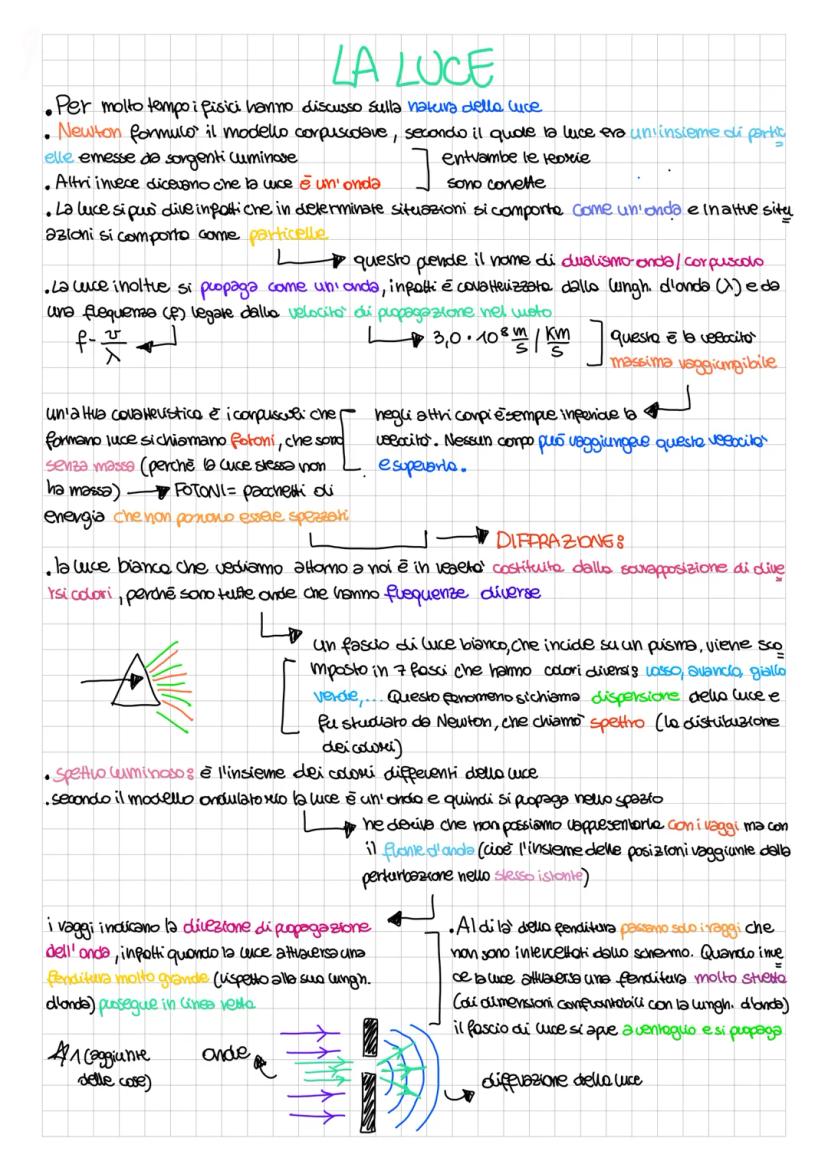 LA LUCE
. Per molto tempo i fisici hanno discusso sulla natura della luce
. Newton formulò il modello corpuscolare, secondo il quale la luce era un'insieme di partic
elle emesse da sorgenti luminose
entrambe le teorie
. Altri invece dicevano che la luce è un'onda
sono corrette
. La luce si può dire infatti che in determinate situazioni si comporta come un'onda e in altre situ
azioni si comporta come particelle
questo prende il nome di dualismo-onda/corpuscolo
. La luce inoltre si propaga come un'onda, infatti è caratterizzata dalla lungh. d'onda (λ) e da
una frequenza (f) legate dalla velocità di propagazione nel vuoto
f- v/λ
3,0 · 10⁸ m/s / Km/s
questa è la velocità
massima raggiungibile
un'altra caratteristica è i corpuscoli che
formano luce si chiamano fotoni, che sono
senza massa (perchè la luce stessa non
ha massa) FOTONI= pacchetti di
energia che non possono essere spezzati
negli altri corpi è sempre inferiore la
velocità. Nessun corpo può raggiungere questa velocità
e superarla.
DIFFRAZIONE:
. la luce bianca che vediamo attorno a noi è in realtà costituita dalla sovrapposizione di dive
rsi colori, perchè sono tutte onde che hanno frequenze diverse
un fascio di luce bianco, che incide su un prisma, viene sco
mposto in 7 fasci che hanno colori diversi: rosso, arancio, giallo
verde,... Questo fenomeno si chiama dispersione della luce e
fu studiato da Newton, che chiamò spettro (la distribuzione
dei colori)
. spettro luminoso: è l'insieme dei colori differenti della luce
. secondo il modello ondulatorio la luce è un'onda e quindi si propaga nello spazio
ne deriva che non possiamo rappresentarla con i raggi ma con
il fronte d'onda (cioè l'insieme delle posizioni raggiunte dalla
perturbazione nello stesso istante)
i raggi indicano la direzione di propagazione
dell'onda, infatti quando la luce attraversa una
fenditura molto grande (rispetto alla sua lungh.
d'onda) prosegue in linea retta
. Al di là della fenditura passano solo i raggi che
non sono intercettati dallo schermo. Quando inve
ce la luce attraversa una fenditura molto stretta
(di dimensioni confrontabili con la lungh. d'onda)
il fascio di luce si apre a ventaglio e si propaga
(aggiunte
delle cose)
onde
diffrazione della luce